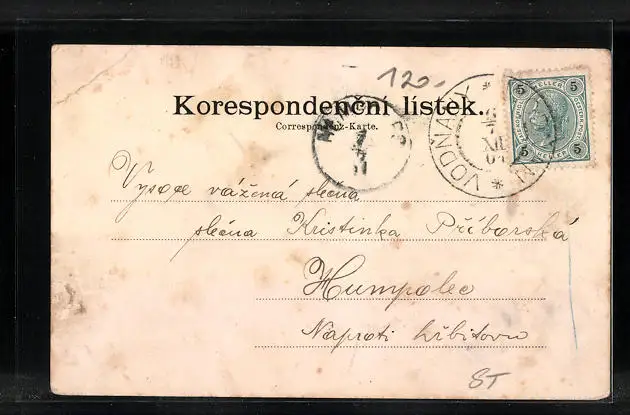 120.-
Korespondenční lístek.
Correspondenz-Karte.
VODŇANY
XII
5 HELLER 5
5 HELLER 5
Vysoce vážená slečna
slečna Kristinka Příborská
Humpolec
Naproti hřbitovu
ST